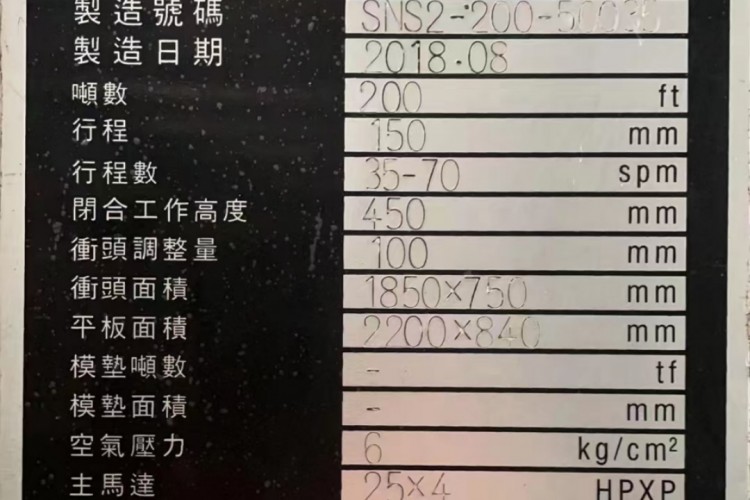 製造號碼 SNS2-200-50035
製造日期 2018.08
噸數 200 ft
行程 150 mm
行程數 35-70 spm
閉合工作高度 450 mm
衝頭調整量 100 mm
衝頭面積 1850×750 mm
平板面積 2200×840 mm
模墊噸數 - tf
模墊面積 - mm
空氣壓力 6 kg/cm²
主馬達 25×4 HPXP